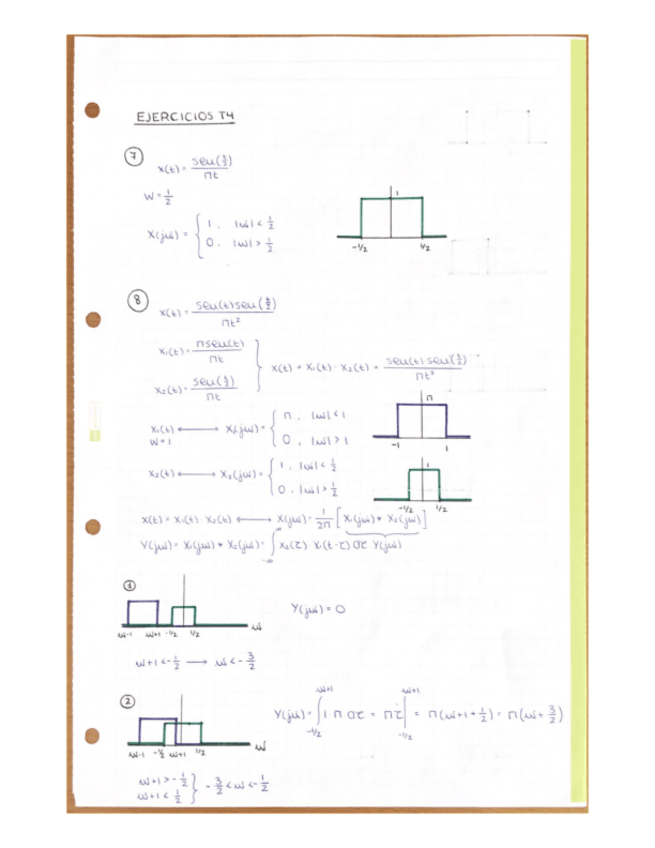 EJERCICIOS T4
7
x(t) = sen(t/2)/πt
W = 1/2
X(jω) = { 1, |ω| < 1/2
0, |ω| > 1/2
1
-1/2 1/2
8
x(t) = sen(t)sen(t/2)/πt²
x₁(t) = πsen(t)/πt
x₂(t) = sen(t/2)/πt
x(t) = x₁(t) · x₂(t) = sen(t)·sen(t/2)/πt²
x₁(t) ⟷ X₁(jω) = { π, |ω| < 1
W = 1
0, |ω| > 1
π
-1 1
x₂(t) ⟷ X₂(jω) = { 1, |ω| < 1/2
0, |ω| > 1/2
1
-1/2 1/2
x(t) = x₁(t) x₂(t) ⟷ X(jω) = 1/2π [X₁(jω) * X₂(jω)]
Y(jω) = X₁(jω) * X₂(jω) = ∫_{-∞}^{∞} x₂(τ) x₁(t-τ) dτ Y(jω)
1
ω-1 ω+1 -1/2 1/2 ω
Y(jω) = 0
ω+1 < -1/2 ⟶ ω < -3/2
2
ω-1 -1/2 ω+1 1/2 ω
Y(jω) = ∫_{-1/2}^{ω+1} 1·π dτ = πτ |_{-1/2}^{ω+1} = π(ω+1+1/2) = π(ω+3/2)
ω+1 > -1/2
ω+1 < 1/2 } -3/2 < ω < -1/2